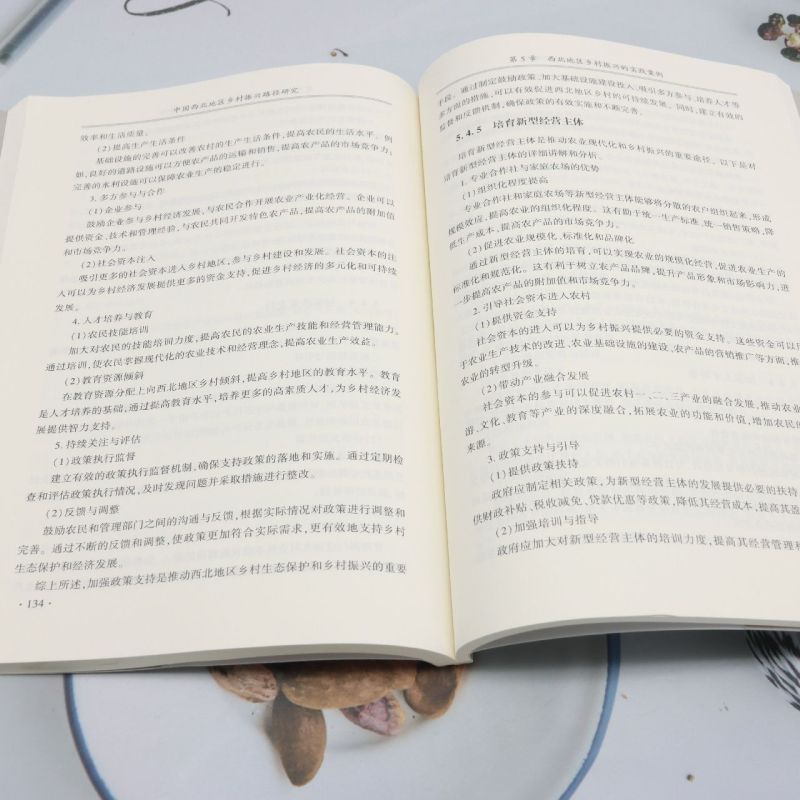 中国西北地区乡村振兴路径研究
效率和生活质量。
(2)提高生产生活条件
基础设施的完善可以改善农村的生产生活条件,提高农民的生活水平。例
如,良好的道路设施可以方便农产品的运输和销售,提高农产品的市场竞争力;
完善的水利设施可以保障农业生产的稳定进行。
3. 多方参与与合作
(1)企业参与
鼓励企业参与乡村经济发展、与农民合作开展农业产业化经营。企业可以
提供资金、技术和管理经验,与农民共同开发特色农产品,提高农产品的附加值
和市场竞争力。
(2)社会资本注入
吸引更多的社会资本进入乡村地区,参与乡村建设和发展。社会资本的注
入可以为乡村经济发展提供更多的资金支持,促进乡村经济的多元化和可持续
发展。
4. 人才培养与教育
(1)农民技能培训
加大对农民的技能培训力度,提高农民的农业生产技能和经营管理能力。
通过培训,使农民掌握现代化的农业技术和经营理念,提高农业生产效益。
(2)教育资源倾斜
在教育资源分配上向西北地区乡村倾斜,提高乡村地区的教育水平。教育
是人才培养的基础,通过提高教育水平,培养更多的高素质人才,为乡村经济发
展提供智力支持。
5. 持续关注与评估
(1)政策执行监督
建立有效的政策执行监督机制,确保支持政策的落地和实施。通过定期检
查和评估政策执行情况,及时发现问题并采取措施进行整改。
(2)反馈与调整
鼓励农民和管理部门之间的沟通与反馈,根据实际情况对政策进行调整和
完善。通过不断的反馈和调整,使政策更加符合实际需求,更有效地支持乡村
生态保护和经济发展。
综上所述,加强政策支持是推动西北地区乡村生态保护和乡村振兴的重要
· 134 ·
第5章 西北地区乡村振兴的实践案例
手段。通过制定鼓励政策、加大基础设施建设投入、吸引多方参与、培养人才等
多方面的措施,可以有效促进西北地区乡村的可持续发展。同时,建立有效的
监督和反馈机制,确保政策的有效实施和不断完善。
5.4.5 培育新型经营主体
培育新型经营主体是推动农业现代化和乡村振兴的重要途径。以下是对
培育新型经营主体的详细讲解和分析。
1. 专业合作社与家庭农场的优势
(1)组织化程度提高
专业合作社和家庭农场等新型经营主体能够将分散的农户组织起来,形成
规模效应,提高农业的组织化程度。这有助于统一生产标准、统一销售策略,降
低生产成本,提高农产品的市场竞争力。
(2)促进农业规模化、标准化和品牌化
通过新型经营主体的培育,可以实现农业的规模化经营,促进农业生产的
标准化和规范化。这有利于树立农产品品牌,提升产品形象和市场影响力,进
一步提高农产品的附加值和市场竞争力。
2. 引导社会资本进入农村
(1)提供资金支持
社会资本的进入可以为乡村振兴提供必要的资金支持。这些资金可以用
于农业生产技术的改进、农业基础设施的建设、农产品的营销推广等方面,推
农业的转型升级。
(2)带动产业融合发展
社会资本的参与可以促进农村一、二、三产业的融合发展,推动农业
游、文化、教育等产业的深度融合,拓展农业的功能和价值,增加农民的
来源。
3. 政策支持与引导
(1)提供政策扶持
政府应制定相关政策,为新型经营主体的发展提供必要的扶持
供财政补贴、税收减免、贷款优惠等政策,降低其经营成本,提高其盈
(2)加强培训与指导
政府应加大对新型经营主体的培训力度,提高其经营管理